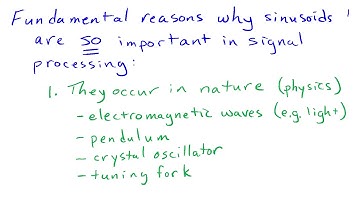 Fundamental reasons why sinusoids
are so important in signal
processing:
1. They occur in nature (physics)
- electromagnetic waves (e.g. light)
- pendulum
- crystal oscillator
- tuning fork